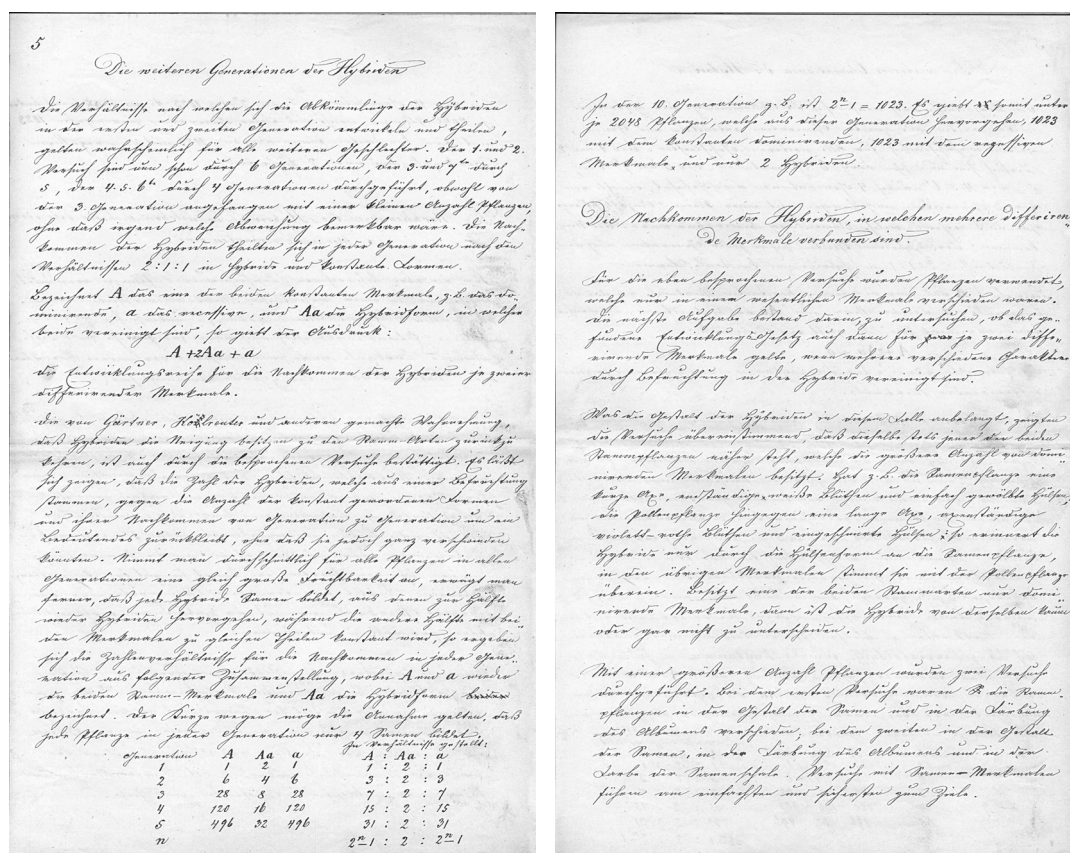 5
Die weiteren Generationen der Hybriden
Die Verhältnisse nach welchen sich die Abkömmlinge der Hybriden
in der ersten und zweiten Generation entwickeln und theilen,
gelten wahrscheinlich für alle weiteren Geschlechter. Der 1. und 2.
Versuch sind nun schon durch 6 Generationen, der 3. und 7te durch
5, der 4. 5. 6te durch 4 Generationen durchgeführt, obwohl von
der 3. Generation angefangen mit einer kleinen Anzahl Pflanzen,
ohne daß irgend welche Abweichung bemerkbar wäre. Die Nach-
kommen der Hybriden theilten sich in jeder Generation nach den
Verhältnissen 2:1:1 in hybride und konstante Formen.
Bezeichnet A das eine der beiden konstanten Merkmale, z.B. das do-
minirende, a das recessive, und Aa die Hybridform, in welcher
beide vereinigt sind, so giebt der Ausdruck:
A + 2Aa + a
die Entwicklungsreihe für die Nachkommen der Hybriden je zweier
differirender Merkmale.
Die von Gärtner, Kölreuter und anderen gemachte Wahrnehmung,
daß Hybriden die Neigung besitzen zu den Stamm-Arten zurück zu
kehren, ist auch durch die besprochenen Versuche bestättigt. Es läßt
sich zeigen, daß die Zahl der Hybriden, welche aus einer Befruchtung
stammen, gegen die Anzahl der konstant gewordenen Formen
und ihrer Nachkommen von Generation zu Generation um ein
Bedeutendes zurükbleibt, ohne daß sie jedoch ganz verschwinden
könnten. Nimmt man durchschnittlich für alle Pflanzen in allen
Generationen eine gleich große Fruchtbarkeit an, erwägt man
ferner, daß jede Hybride Samen bildet, aus denen zur Hälfte
wieder Hybriden hervorgehen, während die andere Hälfte mit bei-
den Merkmalen zu gleichen Theilen konstant wird, so ergeben
sich die Zahlenverhältnisse für die Nachkommen in jeder Gene-
ration aus folgender Zusammenstellung, wobei A und a wieder
die beiden Stamm-Merkmale und Aa die Hybridform
bezeichnet. Der Kürze wegen möge die Annahme gelten, daß
jede Pflanze in jeder Generation nur 4 Samen bildet.
In Verhältnisse gestellt:
Generation A Aa a A : Aa : a
1 1 2 1 1 : 2 : 1
2 6 4 6 3 : 2 : 3
3 28 8 28 7 : 2 : 7
4 120 16 120 15 : 2 : 15
5 496 32 496 31 : 2 : 31
n 2ⁿ-1 : 2 : 2ⁿ-1
In der 10. Generation z.B. ist 2ⁿ-1 = 1023. Es giebt somit unter
je 2048 Pflanzen, welche aus dieser Generation hervorgehen, 1023
mit dem konstanten dominirenden, 1023 mit dem rezessiven
Merkmale, und nur 2 Hybriden.
Die Nachkommen der Hybriden, in welchen mehrere differiren-
de Merkmale verbunden sind.
Für die eben besprochenen Versuche wurden Pflanzen verwendet,
welche nur in einem wesentlichen Merkmale verschieden waren.
Die nächste Aufgabe bestand darin, zu untersuchen, ob das ge-
fundene Entwicklungs-Gesetz auch dann für je zwei diffe-
rirende Merkmale gelte, wenn mehrere verschiedene Charaktere
durch Befruchtung in der Hybride vereinigt sind.
Was die Gestalt der Hybriden in diesem Falle anbelangt, zeigten
die Versuche übereinstimmend, daß dieselbe stets jener der beiden
Stammpflanzen näher steht, welche die größere Anzahl von domi-
nirenden Merkmalen besitzt. Hat z.B. die Samenpflanze eine
kurze Axe, endständige, weiße Blüthen und einfach gewölbte Hülsen,
die Pollenpflanze hingegen eine lange Axe, axenständige
violett-rothe Blüthen und eingeschnürte Hülsen; so erinnert die
Hybride nur durch die Hülsenform an die Samenpflanze,
in den übrigen Merkmalen stimmt sie mit der Pollenpflanze
überein. Besitzt eine der beiden Stammarten nur domi-
nirende Merkmale, dann ist die Hybride von derselben kaum
oder gar nicht zu unterscheiden.
Mit einer größeren Anzahl Pflanzen wurden zwei Versuche
durchgeführt. Bei dem ersten Versuche waren die Stamm-
pflanzen in der Gestalt der Samen und in der Färbung
des Albumens verschieden; bei dem zweiten in der Gestalt
der Samen, in der Färbung des Albumens und in der
Farbe der Samenschale. Versuche mit Samen-Merkmalen
führen am einfachsten und sichersten zum Ziele.